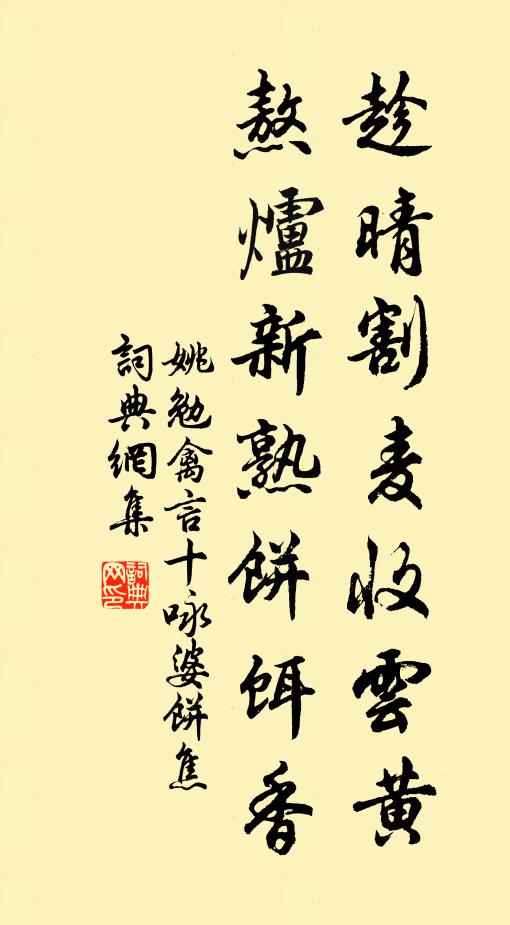 趁晴割麦收雲黄
熬爐新熟餅餌香
姚勉禽言十咏婆餅焦
詞典網集
詞典网印